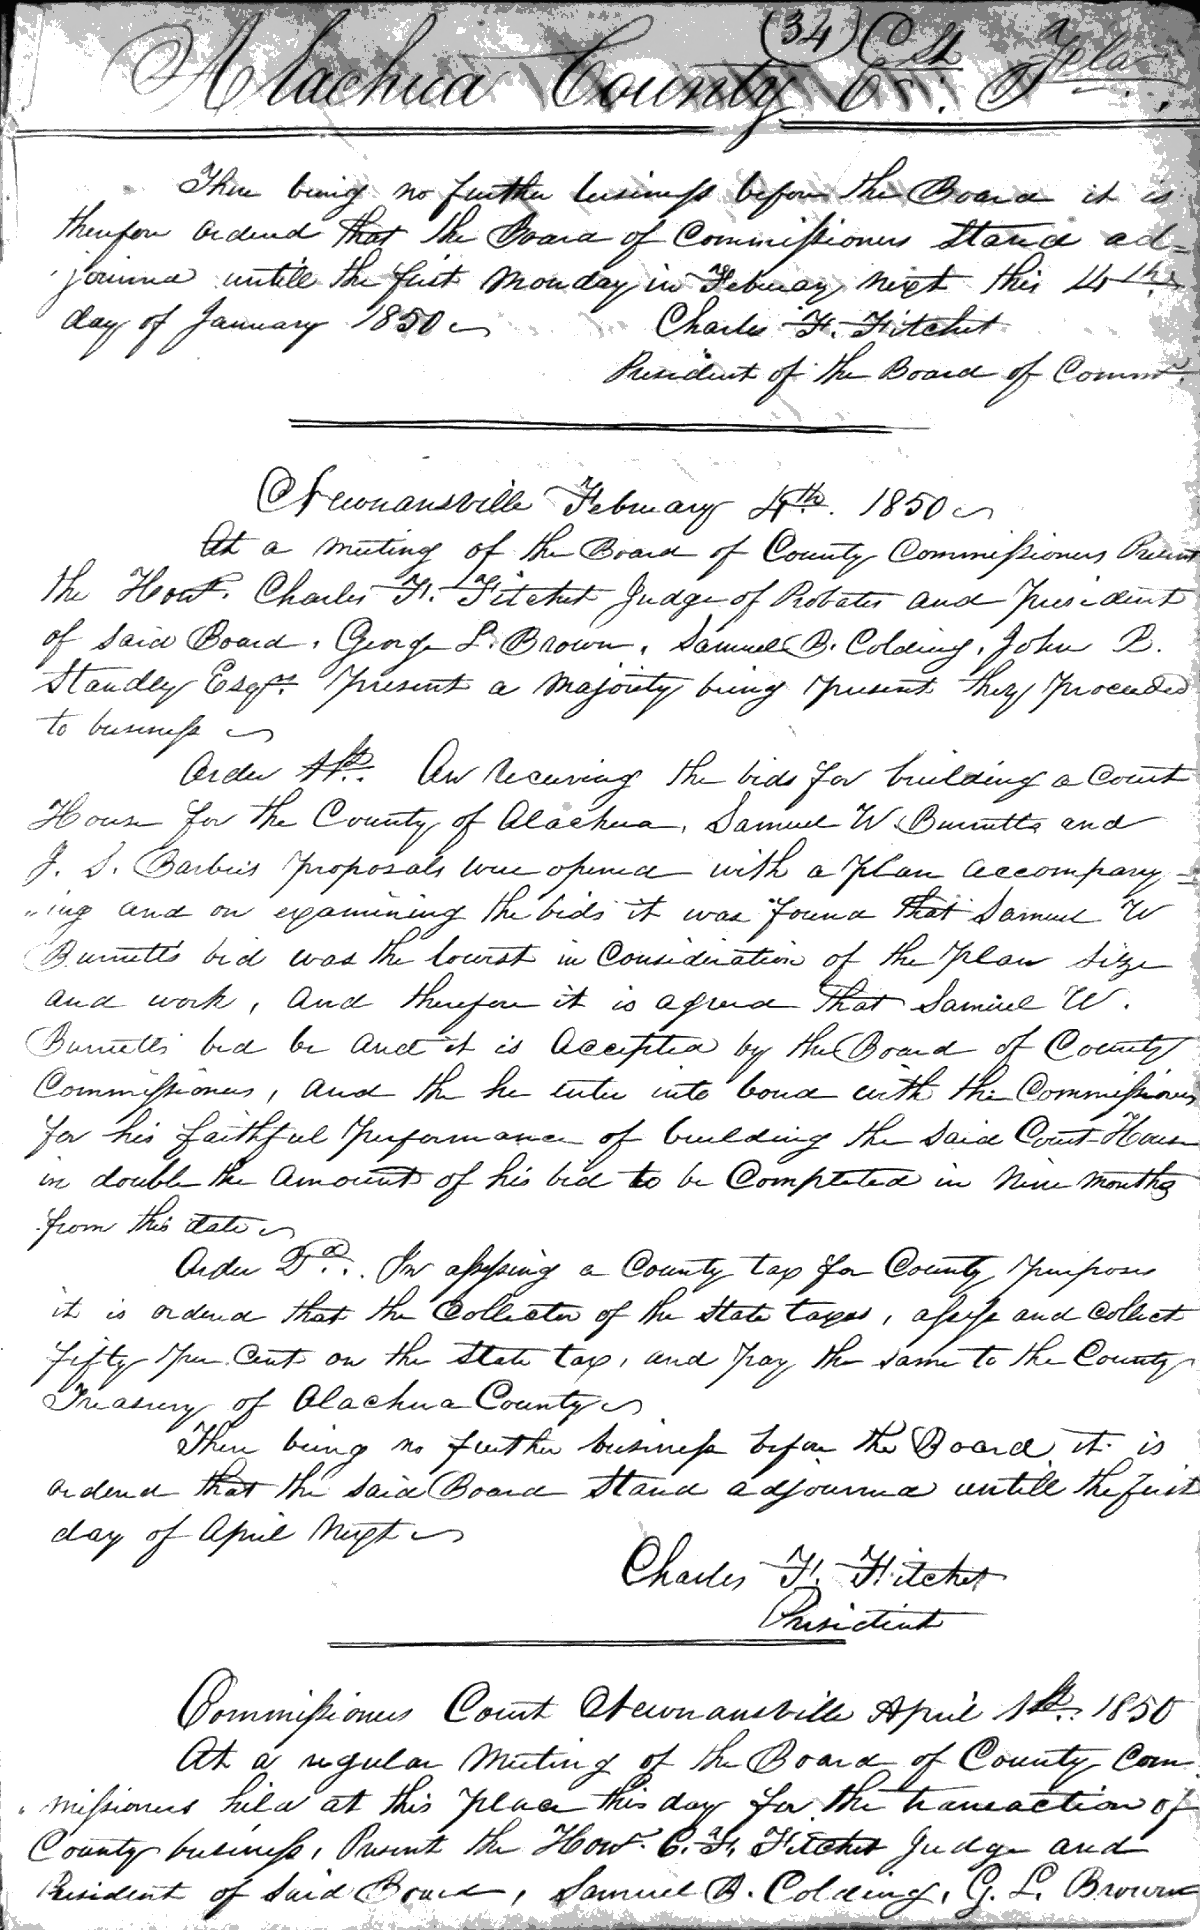 (34)
Alachua County Ct. Fla.
There being no further business before the Board it is
therefore ordered that the Board of Commissioners Stand ad=
journed untill the first Monday in Febuary next this 4th
day of January 1850
Charles F. Fitchet
President of the Board of Commrs.
Newnansville February 4th. 1850
At a meeting of the Board of County Commissioners Present
the Honl. Charles F. Fitchet Judge of Probates and President
of said Board, George L. Brown, Samuel B. Colding, John R.
Standley Esqrs. present a majority being present they proceeded
to business
Order 1st. On receiving the bids for building a Court
House for the County of Alachua, Samuel W. Burnetts and
J. S. Barbers proposals were opened with a plan accompany=
"ing and on examining the bids it was found that Samuel W
Burnetts bid was the lowest in Consideration of the plan size
and work, and therefore it is agreed that Samuel W.
Burnetts bid be and it is accepted by the Board of County
Commissioners, and the he enter into bond with the Commissioners
for his faithful performance of building the said Court House
in double the amount of his bid to be Completed in nine months
from this date
Order 2d. In assessing a County tax for County purposes
it is ordered that the Collector of the State taxes, assess and Collect
fifty per Cent on the State tax, and pay the same to the County
Treasury of Alachua County
There being no further business before the Board it is
ordered that the said Board Stand adjourned untill the first
day of April next
Charles F. Fitchet
President
Commissioners Court Newnansville April 1st. 1850
At a regular meeting of the Board of County Com-
"missioners held at this place this day for the transaction of
County business, Present the Honl. C. F. Fitchet Judge and
President of said Board, Samuel B. Colding, G. L. Brown